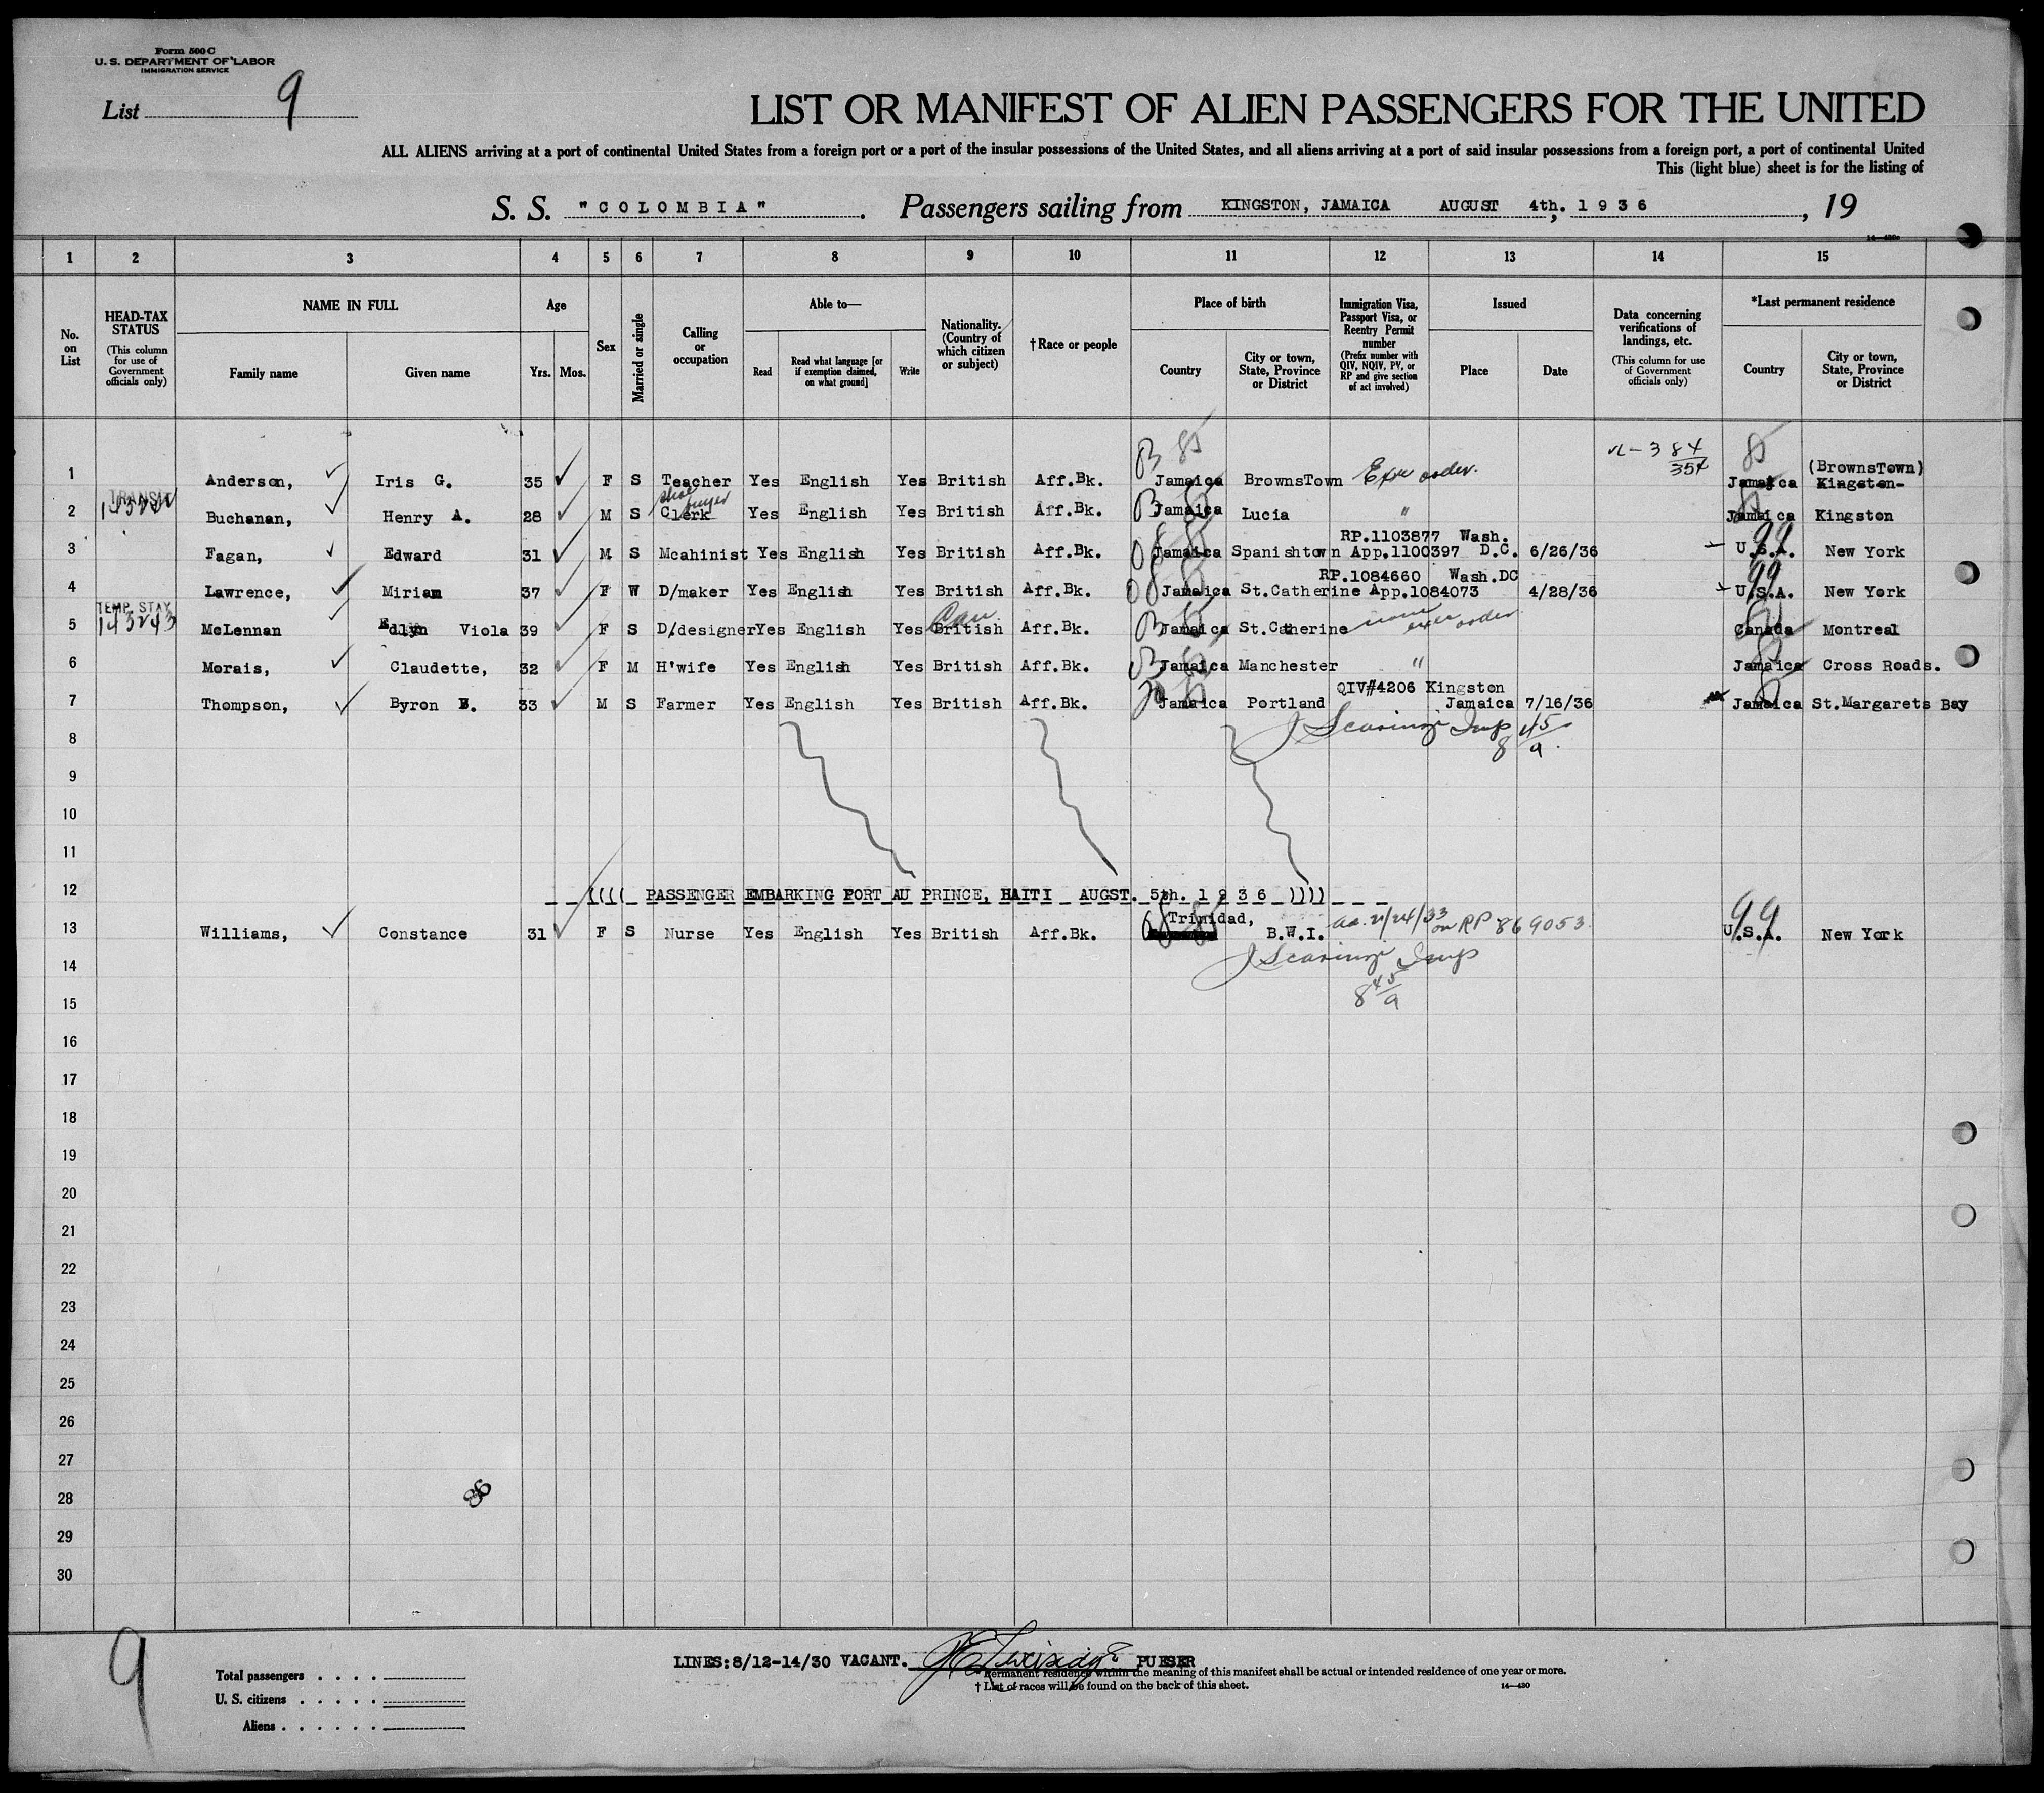 Form 500 C
U. S. DEPARTMENT OF LABOR
IMMIGRATION SERVICE
List 9
LIST OR MANIFEST OF ALIEN PASSENGERS FOR THE UNITED
ALL ALIENS arriving at a port of continental United States from a foreign port or a port of the insular possessions of the United States, and all aliens arriving at a port of said insular possessions from a foreign port, a port of continental United
This (light blue) sheet is for the listing of
S. S. "COLOMBIA". Passengers sailing from KINGSTON, JAMAICA AUGUST 4th. 1936, 19
1 2 3 4 5 6 7 8 9 10 11 12 13 14 15
No. on List
HEAD-TAX STATUS (This column for use of Government officials only)
NAME IN FULL Family name Given name
Age Yrs. Mos.
Sex
Married or single
Calling or occupation
Able to— Read Read what language [or if exemption claimed, on what ground] Write
Nationality. (Country of which citizen or subject)
†Race or people
Place of birth Country City or town, State, Province or District
Immigration Visa, Passport Visa, or Reentry Permit number (Prefix number with QIV, NQIV, PV, or RP and give section of act involved)
Issued Place Date
Data concerning verifications of landings, etc. (This column for use of Government officials only)
*Last permanent residence Country City or town, State, Province or District
85 384 354 85
1 Anderson, Iris G. 35 F S Teacher Yes English Yes British Aff.Bk. Jamaica BrownsTown Exec order. Jamaica (BrownsTown) Kingston-
TRANSIT
shoe buyer
2 Buchanan, Henry A. 28 M S Clerk Yes English Yes British Aff.Bk. Jamaica Lucia " Jamaica Kingston
RP.1103877 Wash.
3 Fagan, Edward 31 M S Mcahinist Yes English Yes British Aff.Bk. Jamaica Spanishtown App.1100397 D.C. 6/26/36 U.S.A. New York
99
RP.1084660 Wash.DC
4 Lawrence, Miriam 37 F W D/maker Yes English Yes British Aff.Bk. Jamaica St.Catherine App.1084073 4/28/36 U.S.A. New York
99
TEMP. STAY
143243
Can
5 McLennan Edlyn Viola 39 F S D/designer Yes English Yes British Aff.Bk. Jamaica St.Catherine none exec order Canada Montreal
6 Morais, Claudette, 32 F M H'wife Yes English Yes British Aff.Bk. Jamaica Manchester " Jamaica Cross Roads.
QIV#4206 Kingston
7 Thompson, Byron E. 33 M S Farmer Yes English Yes British Aff.Bk. Jamaica Portland Jamaica 7/16/36 Jamaica St.Margarets Bay
J Scaringi Insp
8 45/9
8
9
10
11
12 ((((PASSENGER EMBARKING PORT AU PRINCE, HAITI AUGST. 5th. 1936 ))))
Trinidad,
13 Williams, Constance 31 F S Nurse Yes English Yes British Aff.Bk. B.W.I. 2/24/33 on RP 869053 U.S.A. New York
99
J Scaringi Insp
8 45/9
14
15
16
17
18
19
20
21
22
23
24
25
26
27
28
29
30
9
LINES:8/12-14/30 VACANT. PURSER
Total passengers
U. S. citizens
Aliens
Permanent residence within the meaning of this manifest shall be actual or intended residence of one year or more.
† List of races will be found on the back of this sheet.
14—430